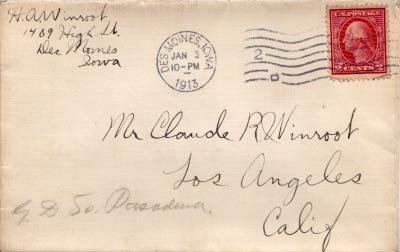 H. A. Winroot
1409 High St.
Des Moines
Iowa
DES MOINES, IOWA
JAN 3
10-PM
1913
2
U.S. POSTAGE
2 CENTS 2
Mr Claude R Winroot
Los Angeles
Calif
So. Pasadena